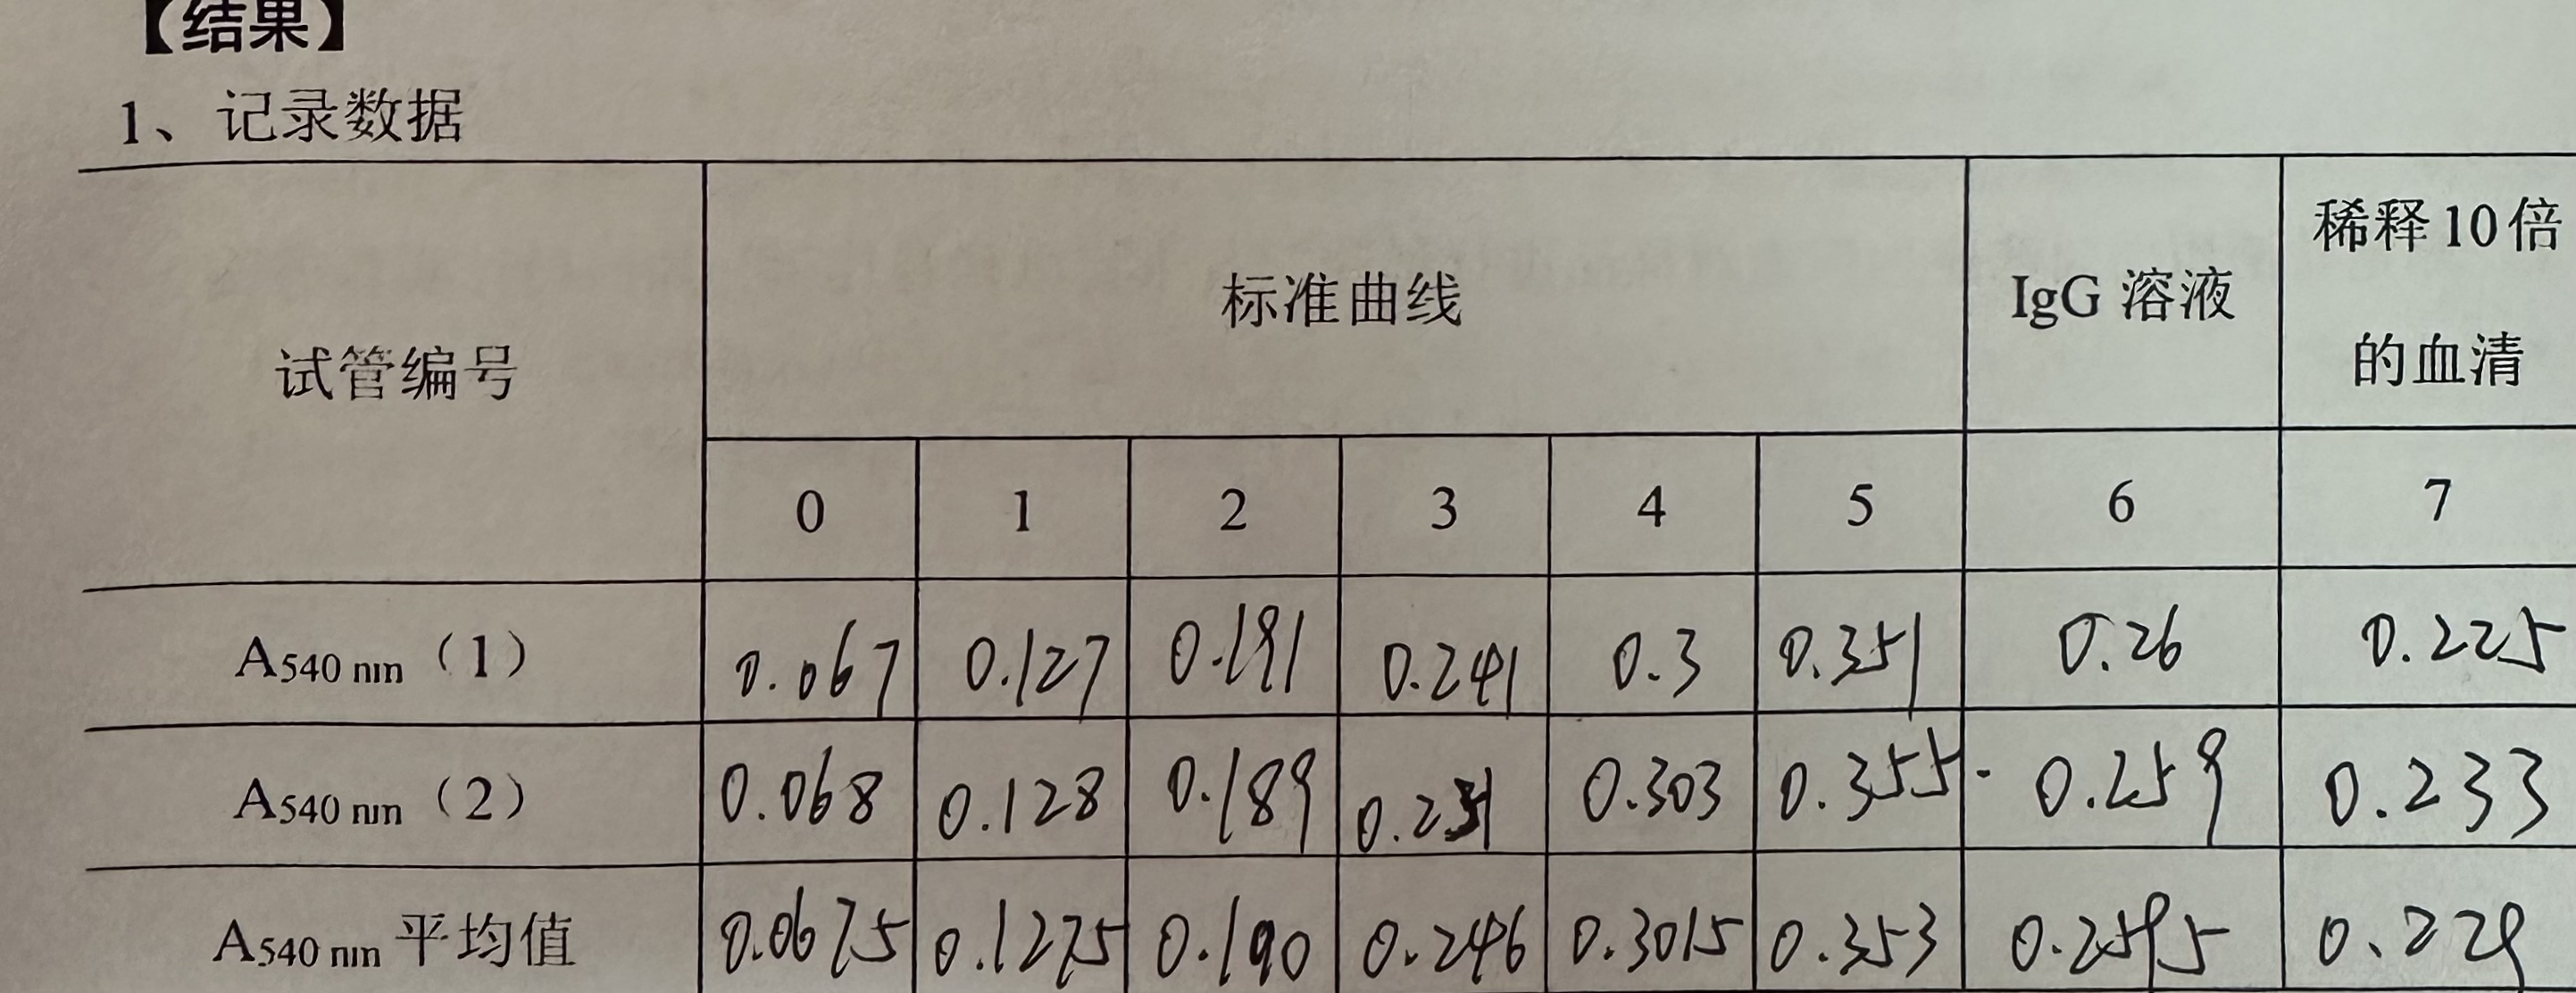 【结果】
1、记录数据
试管编号 标准曲线 IgG 溶液 稀释10倍的血清
0 1 2 3 4 5 6 7
A540 nm（1） 0.067 0.127 0.191 0.241 0.3 0.351 0.26 0.225
A540 nm（2） 0.068 0.128 0.189 0.251 0.303 0.355 0.259 0.233
A540 nm 平均值 0.0675 0.1275 0.190 0.246 0.3015 0.353 0.2595 0.229